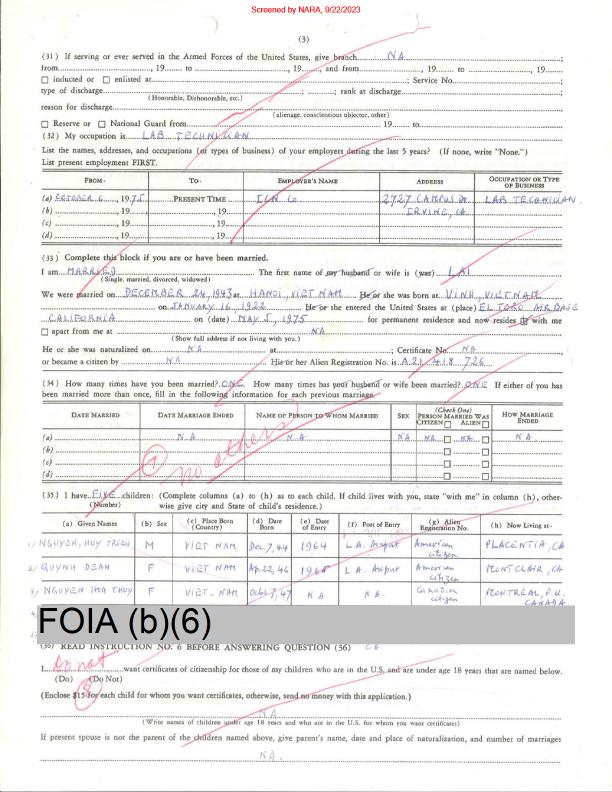 Screened by NARA, 9/22/2023
(3)
(31) If serving or ever served in the Armed Forces of the United States, give branch NA ;
from , 19 to , 19 , and from , 19 to , 19
☐ inducted or ☐ enlisted at ; Service No. ;
type of discharge ; ; rank at discharge ;
(Honorable, Dishonorable, etc.)
reason for discharge
(alienage, conscientious objector, other)
☐ Reserve or ☐ National Guard from , 19 to , 19
(32) My occupation is LAB TECHNICIAN
List the names, addresses, and occupations (or types of business) of your employers during the last 5 years? (If none, write "None.")
List present employment FIRST.
FROM- TO- EMPLOYER'S NAME ADDRESS OCCUPATION OR TYPE OF BUSINESS
(a) OCTOBER 6, 1975 PRESENT TIME ICN Co 2727 CAMPUS Dr. LAB TECHNICIAN
(b) , 19 , 19 IRVINE, CA.
(c) , 19 , 19
(d) , 19 , 19
(33) Complete this block if you are or have been married.
I am MARRIED The first name of my husband or wife is (was) LAI
(Single, married, divorced, widowed)
We were married on DECEMBER 24, 1943 at HANOI, VIET NAM He or she was born at VINH, VIET NAM
on JANUARY 16, 1922 He or she entered the United States at (place) EL TORO AIR BASE
CALIFORNIA on (date) MAY 5, 1975 for permanent residence and now resides ☒ with me
☐ apart from me at NA
(Show full address if not living with you.)
He or she was naturalized on NA at ; Certificate No. NA
or became a citizen by NA His or her Alien Registration No. is A 21 418 726
(34) How many times have you been married? ONE How many times has your husband or wife been married? ONE If either of you has
been married more than once, fill in the following information for each previous marriage.
DATE MARRIED DATE MARRIAGE ENDED NAME OF PERSON TO WHOM MARRIED SEX (Check One) PERSON MARRIED WAS CITIZEN ☐ ALIEN ☐ HOW MARRIAGE ENDED
(a) NA NA NA NA NA NA
(b) ☐ ☐
(c) ☐ ☐
(d) ☐ ☐
7 no others
(35) I have FIVE children: (Complete columns (a) to (h) as to each child. If child lives with you, state "with me" in column (h), other-
(Number) wise give city and State of child's residence.)
(a) Given Names (b) Sex (c) Place Born (Country) (d) Date Born (e) Date of Entry (f) Port of Entry (g) Alien Registration No. (h) Now Living at-
1/ NGUYEN, HUY TRIEU M VIET NAM Dec 7, 44 1964 L.A. Airport American citizen PLACENTIA, CA
2/ QUYNH DEAN F VIET NAM Ap. 22, 46 1965 L.A. Airport American citizen MONTCLAIR, CA
3/ NGUYEN HOA THUY F VIET-NAM Oct 1, 47 NA N.A. Canadian citizen MONTREAL, P.Q. CANADA
FOIA (b)(6)
READ INSTRUCTION NO. 6 BEFORE ANSWERING QUESTION (36)
I do not want certificates of citizenship for those of my children who are in the U.S. and are under age 18 years that are named below.
(Do) (Do Not)
8
(Enclose $15 for each child for whom you want certificates, otherwise, send no money with this application.)
NA
(Write names of children under age 18 years and who are in the U.S. for whom you want certificates)
If present spouse is not the parent of the children named above, give parent's name, date and place of naturalization, and number of marriages
NA.